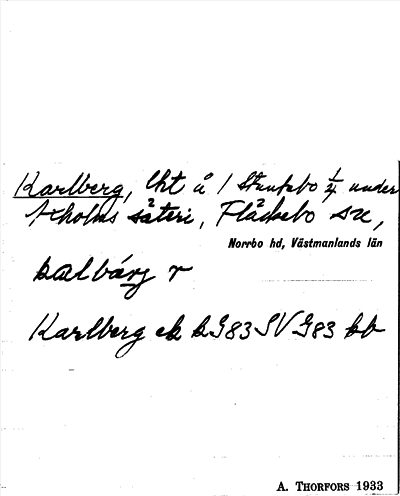 Karlberg, lht å 1 Stuntsbo 1/4 under
Åholms säteri, Fläckebo sn,
Norrbo hd, Västmanlands län
kalbárj r
Karlberg ek k G83 SV G83 bb
A. THORFORS 1933